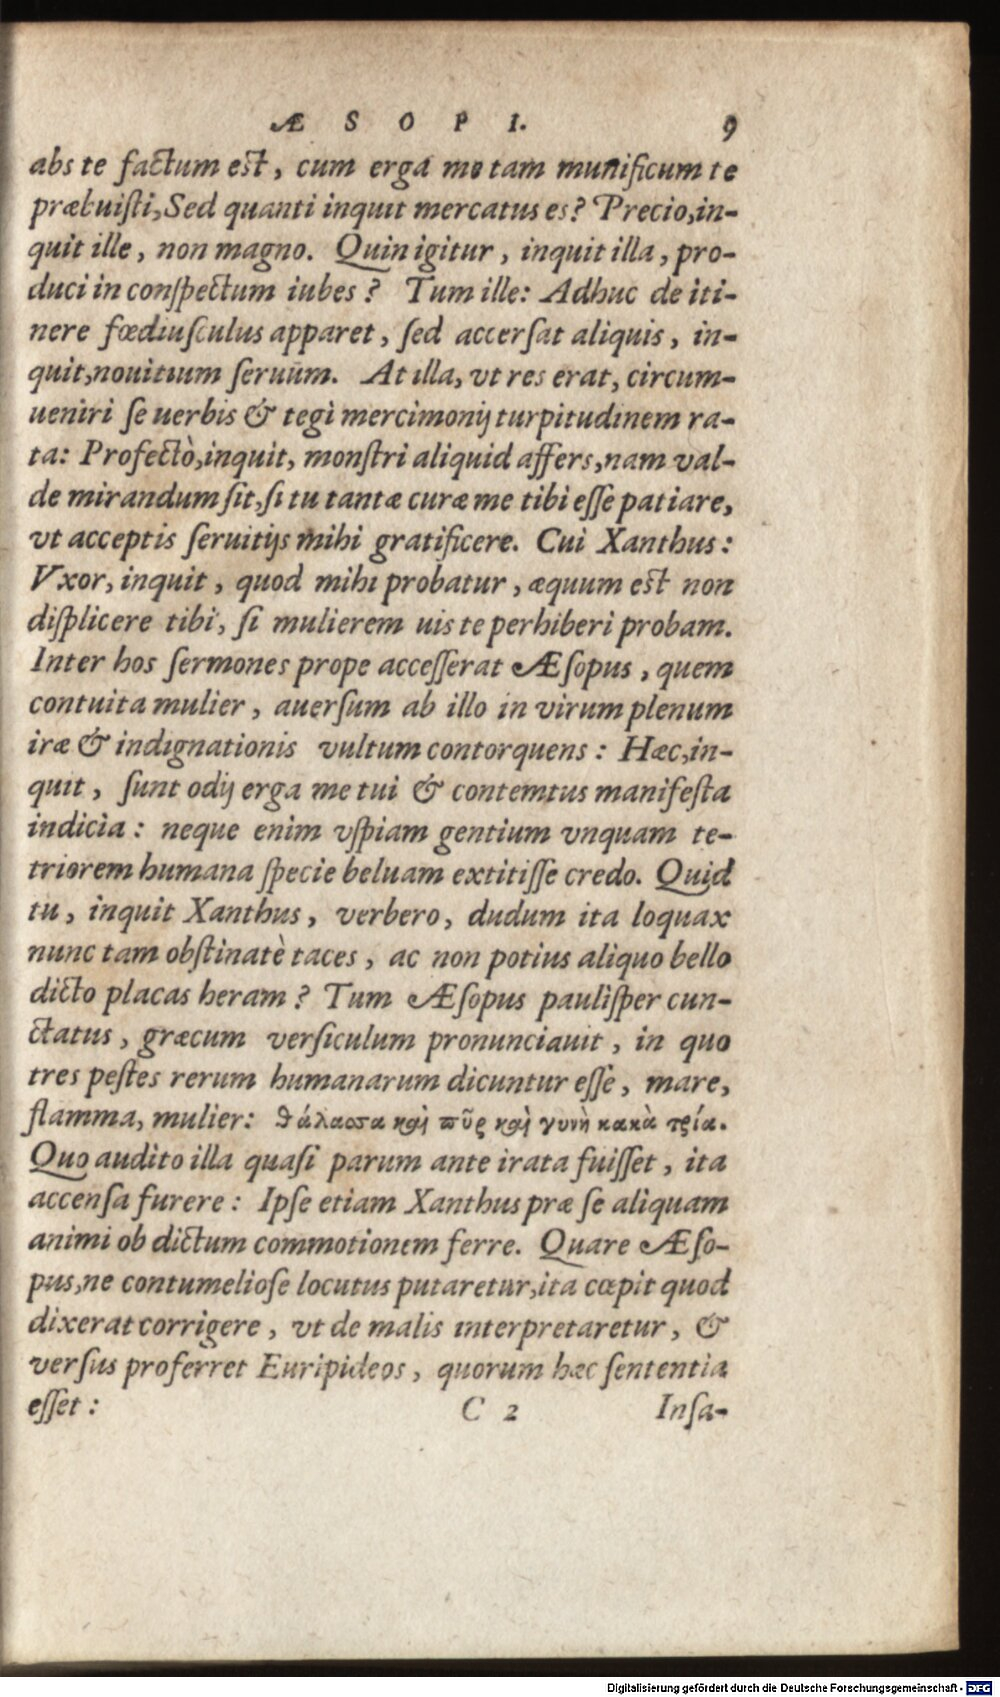 ÆSOPI. 9
abs te factum est, cum erga me tam munificum te
præbuisti, Sed quanti inquit mercatus es? Precio, in-
quit ille, non magno. Quin igitur, inquit illa, pro-
duci in conspectum iubes? Tum ille: Adhuc de iti-
nere fœdiusculus apparet, sed accersat aliquis, in-
quit, nouitium seruum. At illa, vt res erat, circum-
ueniri se uerbis & tegi mercimonij turpitudinem ra-
ta: Profectò, inquit, monstri aliquid affers, nam val-
de mirandum sit, si tu tantæ curæ me tibi esse patiare,
vt acceptis seruitijs mihi gratificere. Cui Xanthus:
Vxor, inquit, quod mihi probatur, æquum est non
displicere tibi, si mulierem uis te perhiberi probam.
Inter hos sermones prope accesserat Æsopus, quem
contuita mulier, auersum ab illo in virum plenum
iræ & indignationis vultum contorquens: Hæc, in-
quit, sunt odij erga me tui & contemtus manifesta
indicia: neque enim vspiam gentium vnquam te-
triorem humana specie beluam extitisse credo. Quid
tu, inquit Xanthus, verbero, dudum ita loquax
nunc tam obstinatè taces, ac non potius aliquo bello
dicto placas heram? Tum Æsopus paulisper cun-
ctatus, græcum versiculum pronunciauit, in quo
tres pestes rerum humanarum dicuntur esse, mare,
flamma, mulier: θάλαασα καὶ πῦρ καὶ γυνὴ κακὰ τρία.
Quo audito illa quasi parum ante irata fuisset, ita
accensa furere: Ipse etiam Xanthus præ se aliquam
animi ob dictum commotionem ferre. Quare Æso-
pus, ne contumeliose locutus putaretur, ita cœpit quod
dixerat corrigere, vt de malis interpretaretur, &
versus proferret Euripideos, quorum hæc sententia
esset: C 2 Insa-
Digitalisierung gefördert durch die Deutsche Forschungsgemeinschaft - DFG